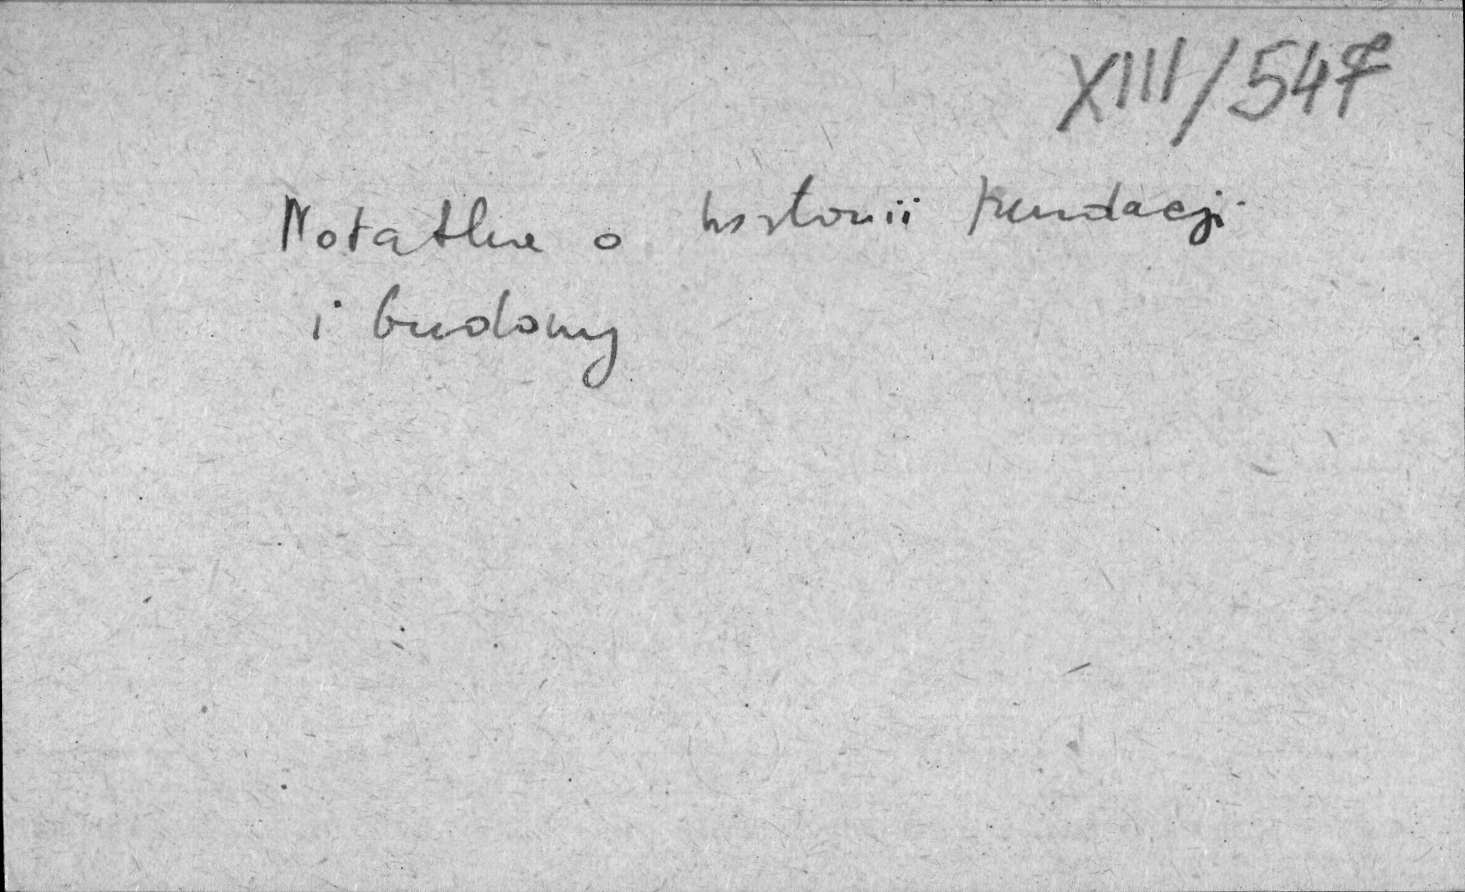 XIII/547
Notatka o historii fundacji
i budowy